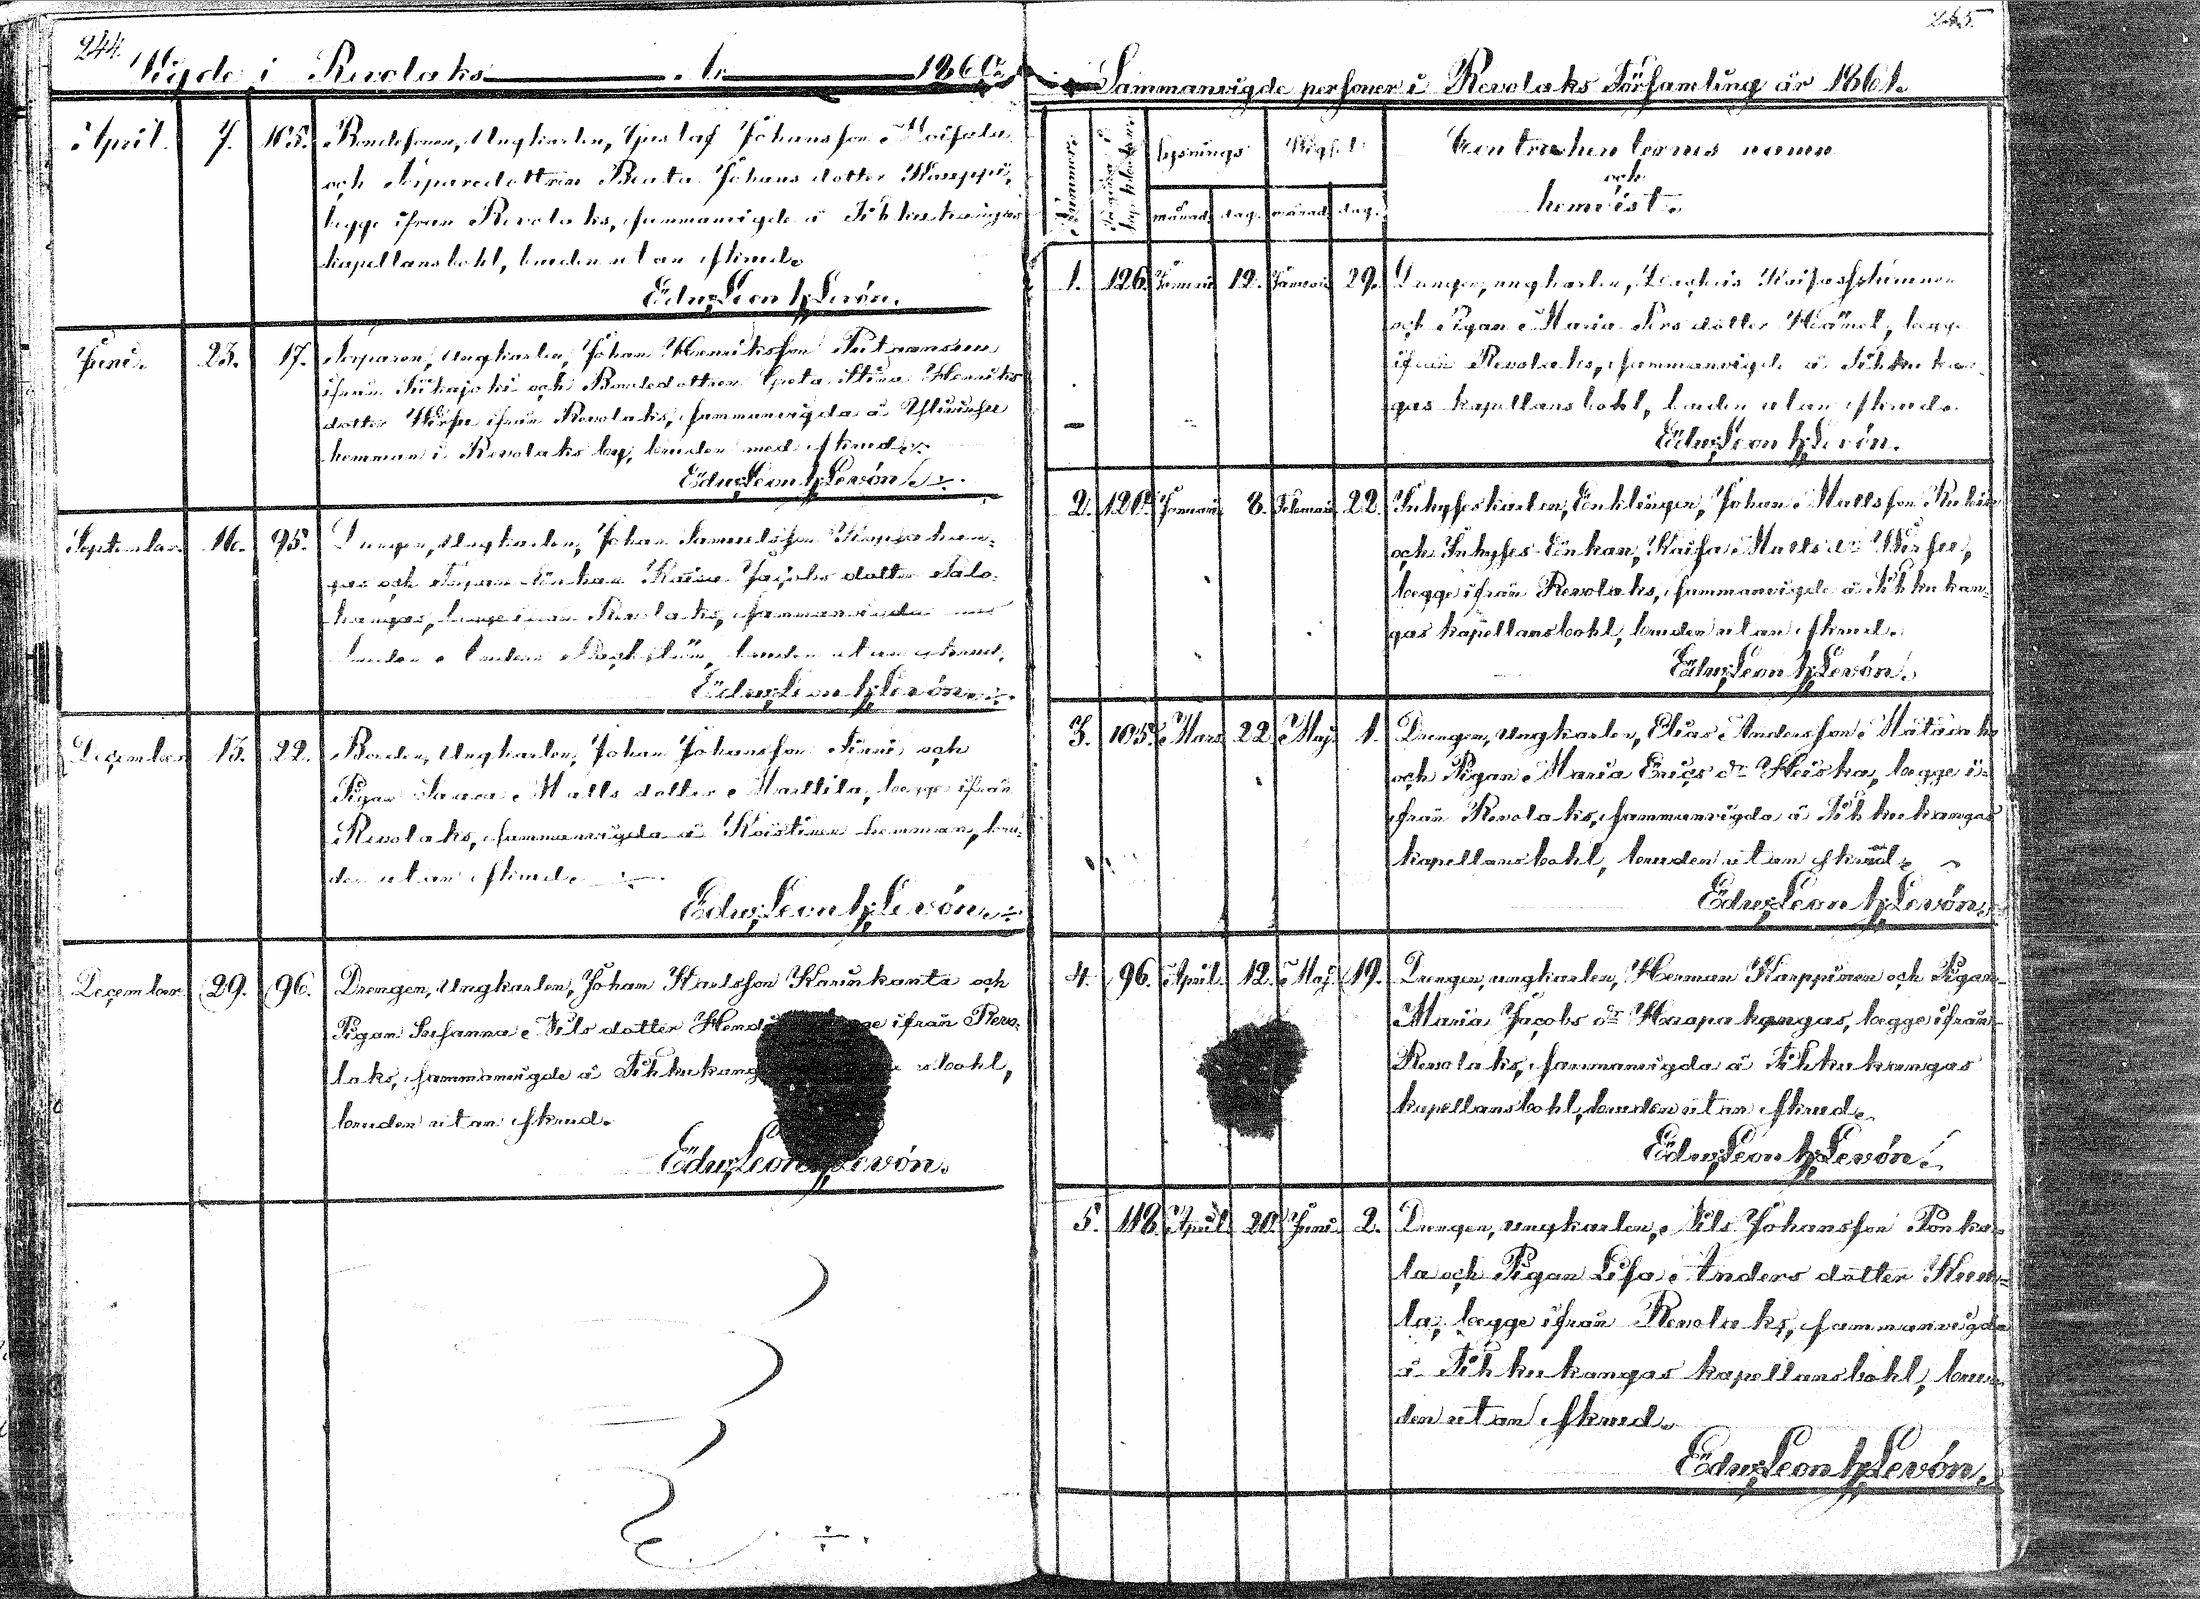 244.
Wigde i Revolaks År 1860.
April. 7. 105. Bondesonen, Ungkarlen, Gustaf Johansson
och Torparedottren Beata Johans dotter Kauppi,
begge ifrån Revolaks, sammanvigde å Tihkukangas
kapellansbohl, bruden utan skrud.
Edw. Leon. Levón.
Juni. 23. 17. Torparen, Ungkarlen, Johan Henriksson
ifrån Siikajoki och Bondedottren Greta Stina Henriks
dotter ifrån Revolaks, sammanvigda å
hemman i Revolaks by, bruden med skrud.
Edw. Leon. Levón.
September. 16. 95. Drengen, Ungkarlen, Johan Samuelsson Haapakan-
gas och Enkan Jacobs dotter Salo-
kangas, begge ifrån Revolaks, sammanvigda
bruden utan skrud.
Edw. Leon. Levón.
December 13. 22. Bonden, Ungkarlen, Johan Johansson och
Pigan Saara Matts dotter Marttila, begge ifrån
Revolaks, sammanvigda å hemman, bru-
den utan skrud.
Edw. Leon. Levón.
December 29. 96. Drengen, Ungkarlen, Johan Karlsson Karinkanta och
Pigan Susanna Nils dotter ifrån Revo-
laks, sammanvigde å Tihkukang bohl,
bruden utan skrud.
Edw. Leon. Levón.
245.
Sammanvigde personer i Revolaks Församling år 1861.
Nummer. Lysnings Vigsel Contrahenternes namn
och
månad. dag. månad. dag. hemvist.
1. 126. Januari 12. Januari 29. Drengen, ungkarlen,
och Pigan Maria Pers dotter begge
ifrån Revolaks, sammanvigde å Tihkukan-
gas kapellansbohl, bruden utan skrud.
Edw. Leon. Levón.
2. 120. Januari 8. Februari 22. Inhyseskarlen, Enklingen, Johan Mattsson
och Inhyses Enkan, Kaisa Matts dr
begge ifrån Revolaks, sammanvigde å Tihkukan-
gas kapellansbohl, bruden utan skrud.
Edw. Leon. Levón.
3. 105. Mars 22. Maj 1. Drengen, Ungkarlen, Elias Andersson
och Pigan Maria Erics dr Heiska, begge i-
från Revolaks, sammanvigda å Tihkukangas
kapellansbohl, bruden utan skrud.
Edw. Leon. Levón.
4. 96. April 12. Maj. 19. Drengen, ungkarlen, Herman Karppinen och Pigan
Maria Jacobs dr Haapakangas, begge ifrån
Revolaks, sammanvigda å Tihkukangas
kapellansbohl, bruden utan skrud.
Edw. Leon. Levón.
5. 118. April 20. Juni 2. Drengen, ungkarlen, Nils Johansson
och Pigan Lisa Anders dotter
begge ifrån Revolaks, sammanvigda
å Tihkukangas kapellansbohl, bru-
den utan skrud.
Edw. Leon. Levón.